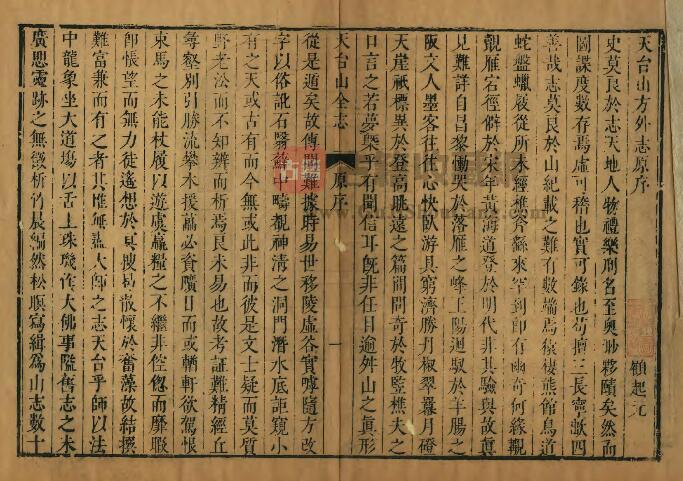 天台山方外志原序
顧起元
史莫良於志天地人物禮樂刑名至奧眇夥頤矣然而
圖諜度數存焉虛可稽也實可錄也苟擅三長寧歉四
善哉志莫艮於山紀載之難有數端焉猿棲熊館鳥道
蛇盤蠟屐從所未經樵斧繇來罕到即有幽奇何緣覯
覩雁宕徑僻於宋年黃海道登於明代非其驗與故眞
見難詳自昌黎慟哭於落雁之峰王陽迴馭於羊腸之
阪文人墨客往往心快臥游具窮濟勝丹椒翠羃月磴
天崖祇標異於登高眺遠之篇間問奇於牧監樵夫之
口言之若夢與乎有聞信耳旣非任目逾舛山之眞形
天台山全志
原序
一
從是遁矣故傳聞難據時易世移陵虛谷實噓隨方改
字以俗訛石醫蘚中疇覩神淸之洞門潛水底詎窺小
有之天或古有而今無或此非而彼是文士疑而莫質
野老泒而不知辨而析焉艮未易也故考証難精經丘
尋壑別引勝流攀木援蘿必資曠日而或輶軒欲駕恨
束馬之未能杖屨以遊虞贏糧之不繼非倥偬而靡暇
卽悵望而無力徒遙想於冥搜易散懷於奮藻故結撰
難富兼而有之者其惟無盡大師之志天台乎師以法
中龍象坐大道場以舌上珠璣作大佛事隘舊志之未
廣思靈跡之無從析竹晨編然松暝寫緝爲山志數十